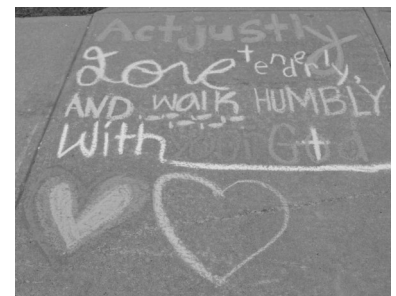 Act justly
Love tenderly,
AND walk HUMBLY
With your God